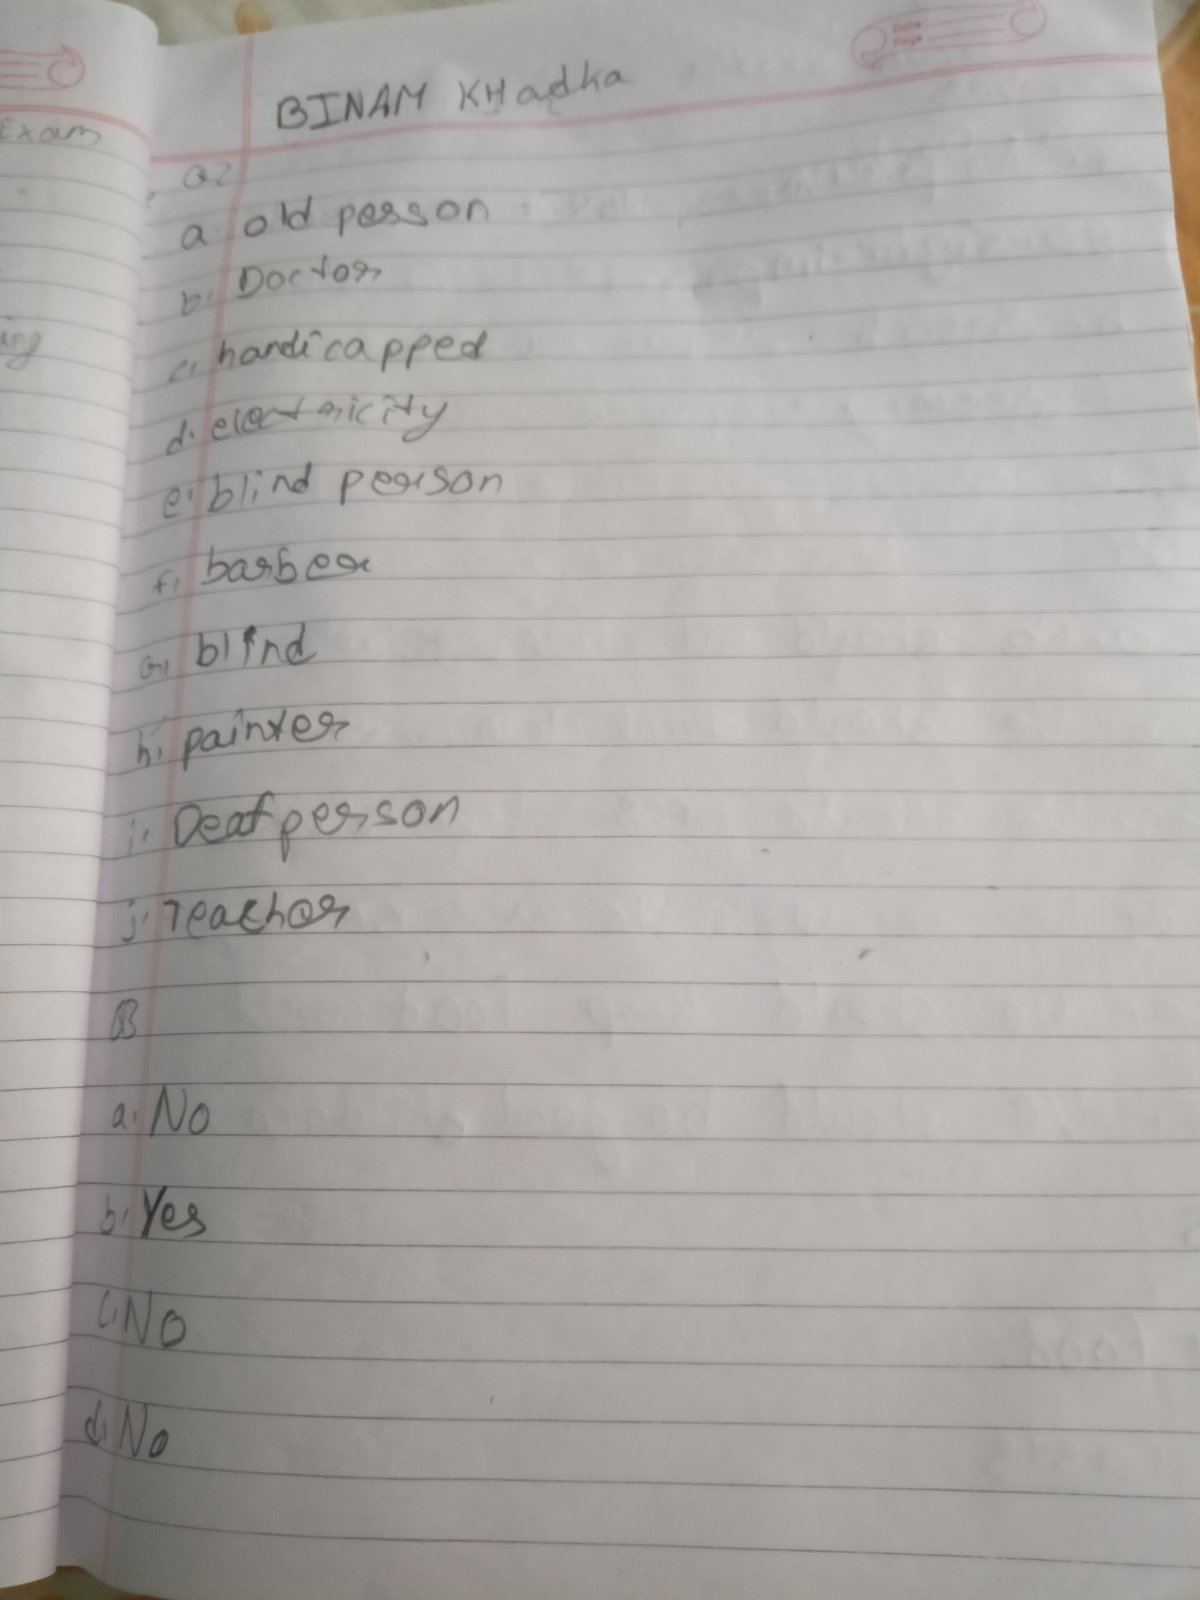 Date
Page
BINAM KHadka
Exam
Q2
a old person
b. Doctor
ing
c. handicapped
d. electricity
e. blind person
f. barber
G. blind
h. painter
i. Deaf person
j. Teacher
B
a. No
b. Yes
c. No
d. No